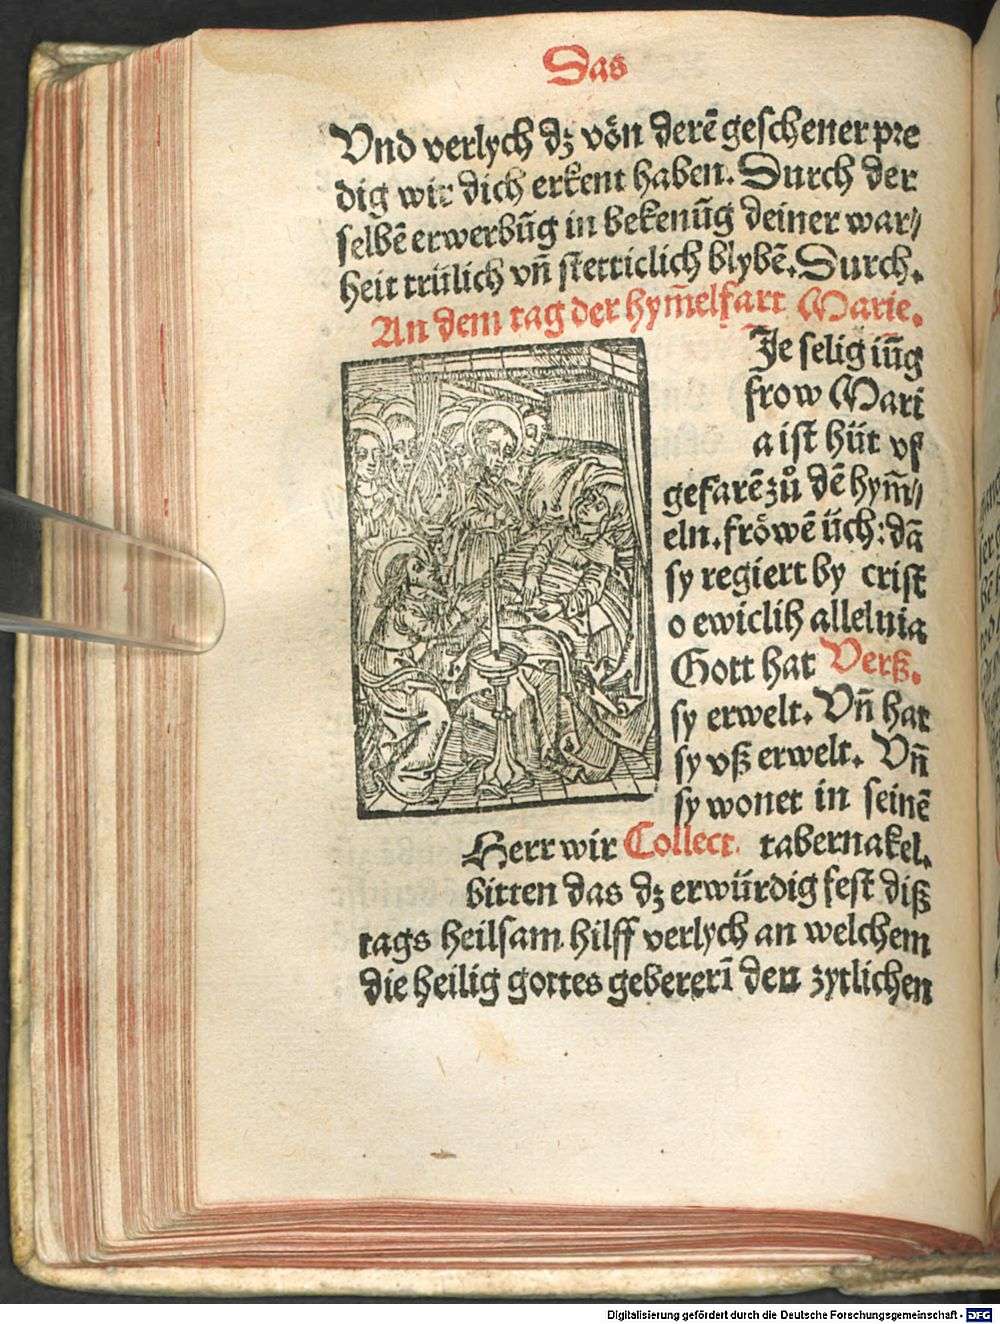 Das
Vnd verlych dz võn derẽ geschener pre
dig wir dich erkent haben. Durch der
selbẽ erwerbũg in bekenũg deiner war⸗
heit trülich vñ stetticlich blybẽ. Durch.
An dem tag der hym̃elfart Marie.
Je selig iũg
frow Mari
a ist hüt vf
gefarẽ zů dẽ hym̃⸗
eln. fröwẽ üch: dã
sy regiert by crist
o ewiclih alleluia
Gott hat Verß.
sy erwelt. Vñ hat
sy vß erwelt. Vñ
sy wonet in seinẽ
Herr wir Collect. tabernakel.
bitten das dz erwürdig fest diß
tags heilsam hilff verlych an welchem
die heilig gottes gebererĩ den zytlichen
Digitalisierung gefördert durch die Deutsche Forschungsgemeinschaft - DFG